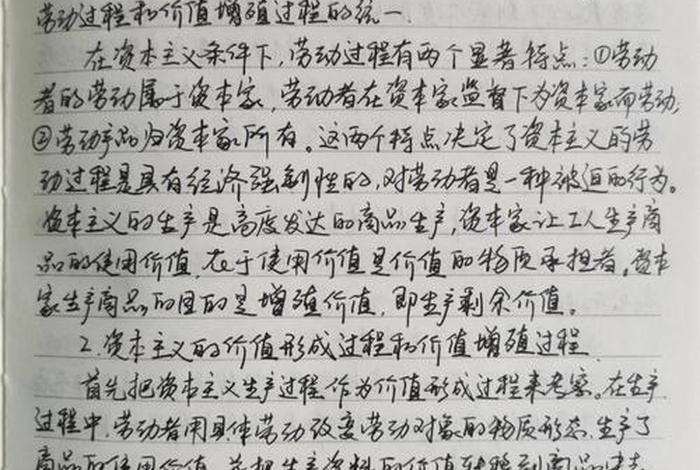 劳动过程和价值增殖过程的统一.
在资本主义条件下,劳动过程有两个显著特点:①劳动
者的劳动属于资本家,劳动者在资本家监督下为资本家而劳动;
②劳动产品归资本家所有。这两个特点决定了资本主义的劳
动过程是具有经济强制性的,对劳动者是一种被迫的行为。
资本主义的生产是高度发达的商品生产,资本家让工人生产商
品的使用价值,在于使用价值是价值的物质承担者。资本
家生产商品的目的是增殖价值,即生产剩余价值。
2.资本主义的价值形成过程和价值增殖过程
首先把资本主义生产过程作为价值形成过程来考察。在生产
过程中,劳动者用具体劳动改变劳动对象的物质形态,生产了
商品的使用价值,并把生产资料的价值转移到商品中去